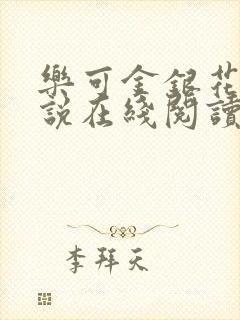 樂可金銀花
說在綫閱讀
李拜天